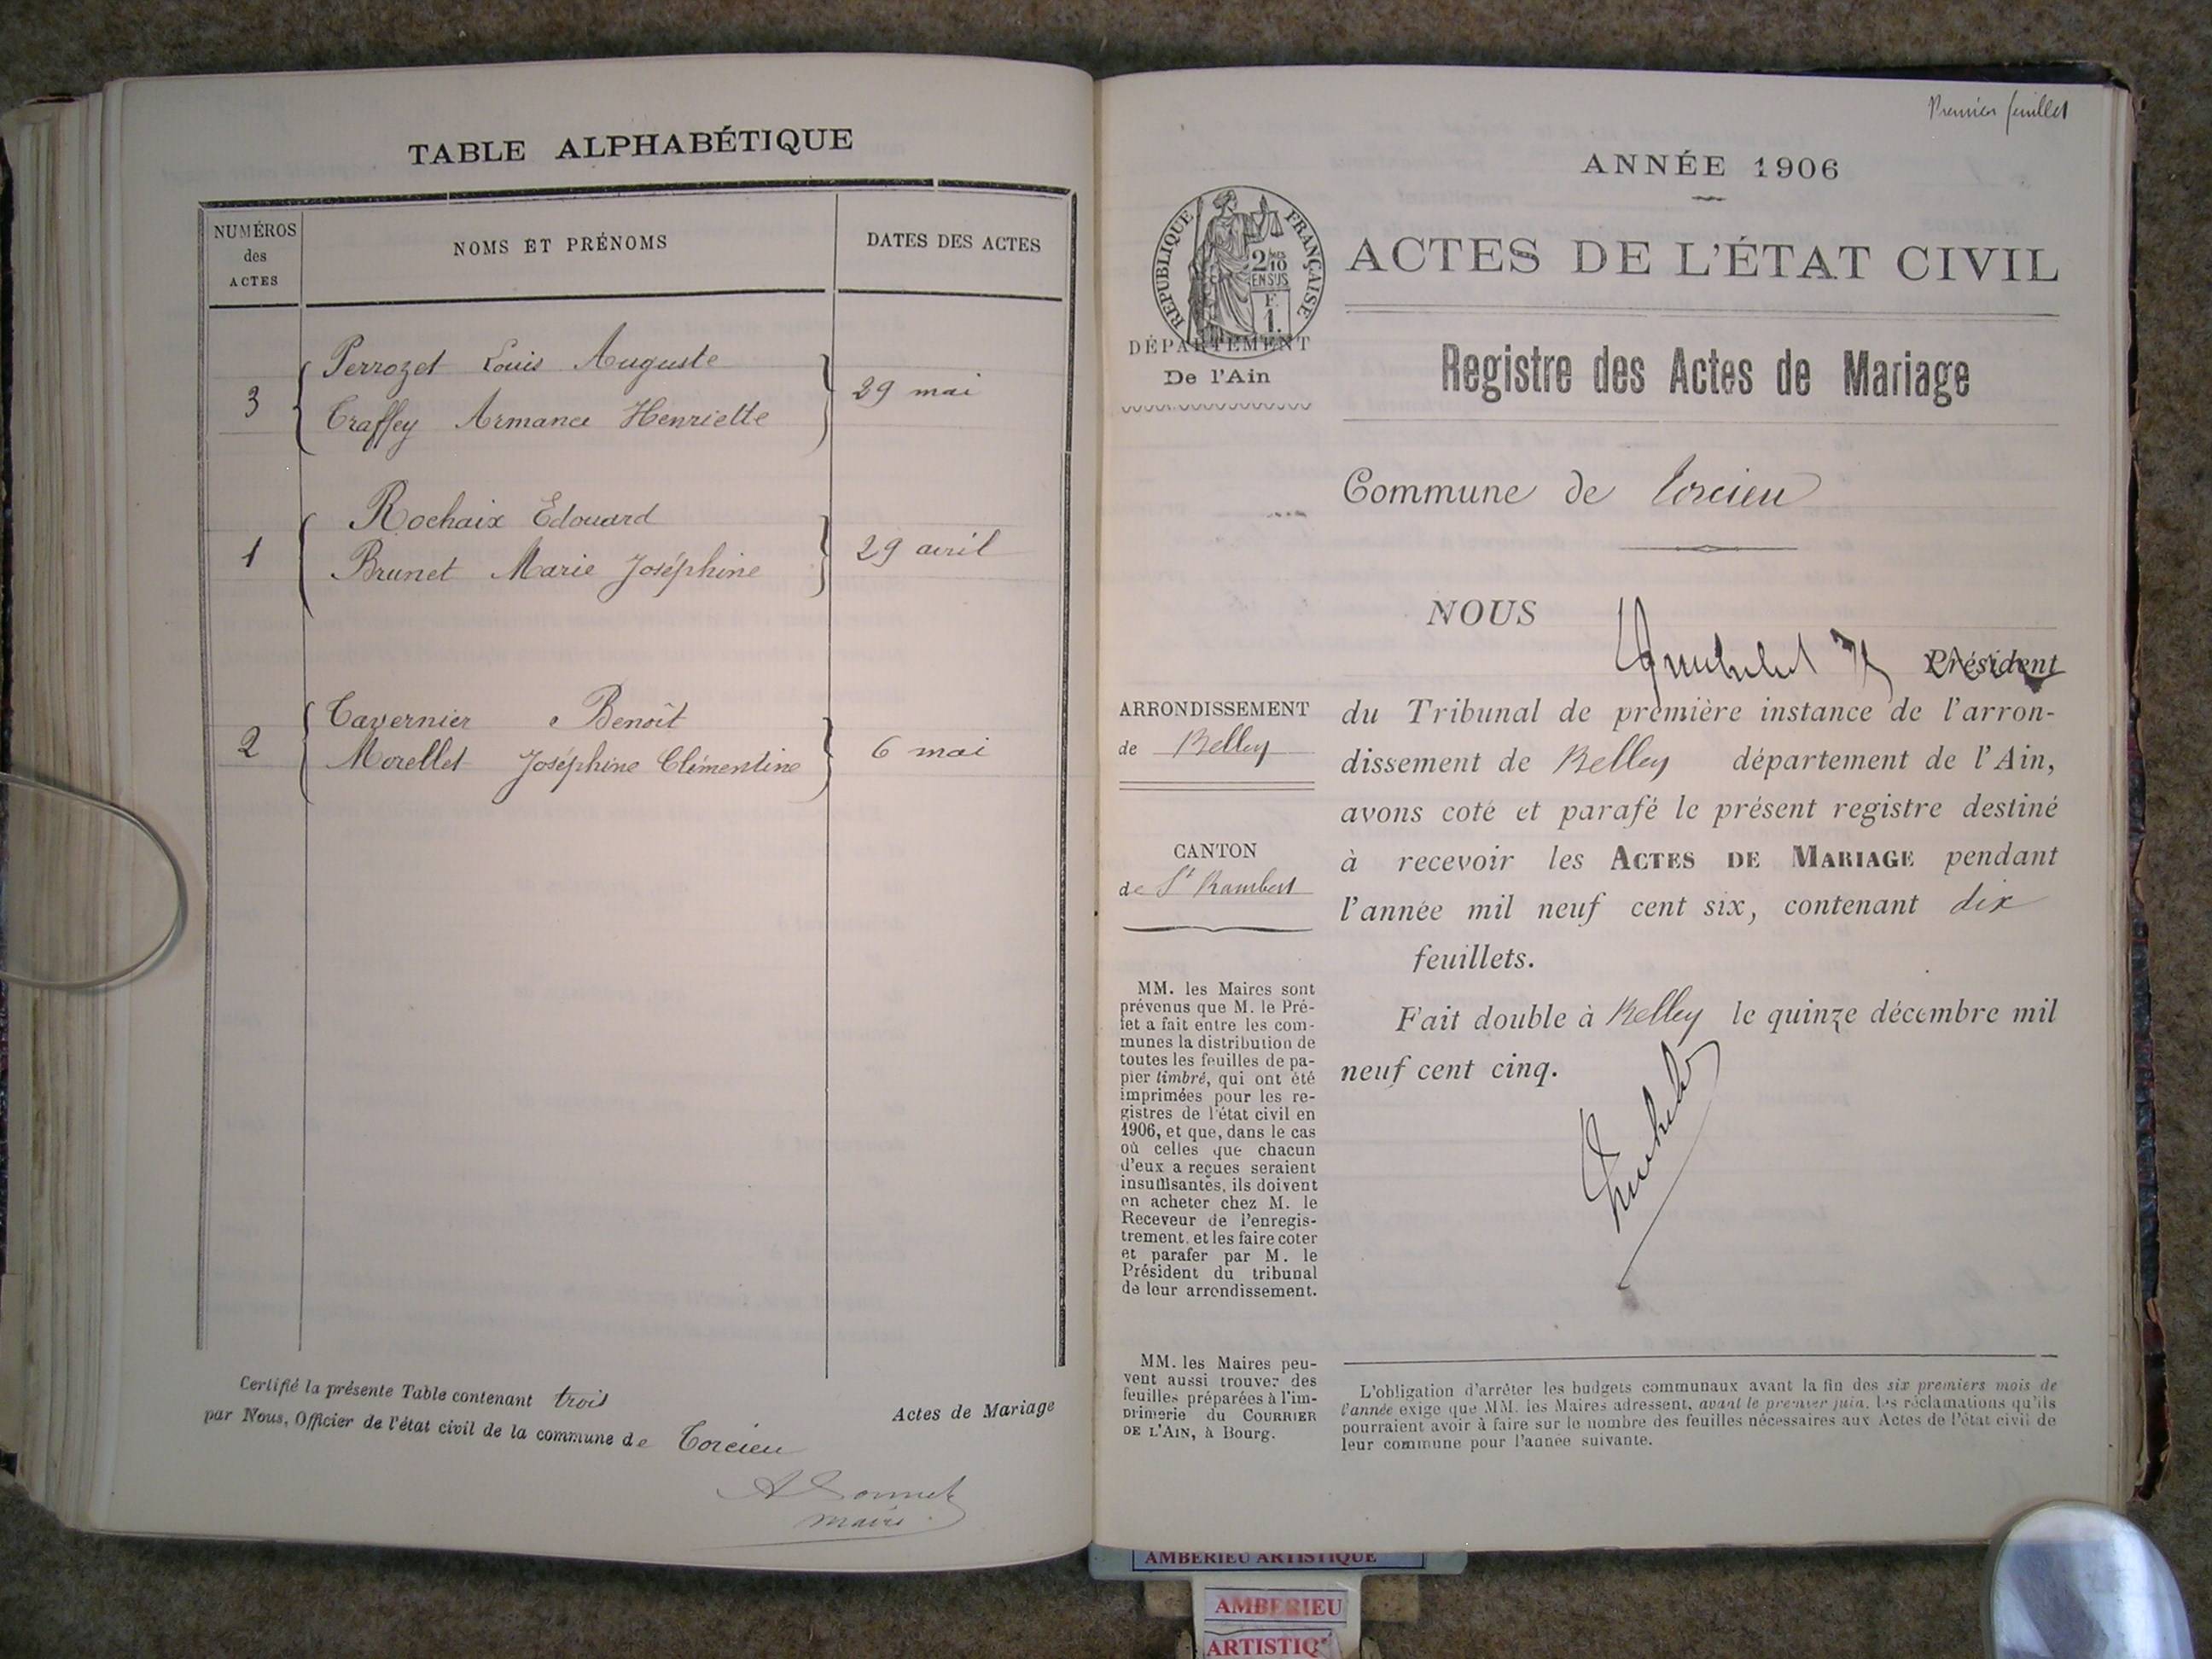 TABLE ALPHABÉTIQUE
NUMÉROS
des
ACTES
NOMS ET PRÉNOMS
DATES DES ACTES
3
Perrozet Louis Auguste
Traffey Armance Henriette
29 mai
1
Rochaix Edouard
Brunet Marie Joséphine
29 avril
2
Tavernier Benoît
Morellet Joséphine Clémentine
6 mai
Certifié la présente Table contenant trois
Actes de Mariage
par Nous, Officier de l'état civil de la commune de Torcieu
A Bonnet
maire
Premier feuillet
ANNÉE 1906
RÉPUBLIQUE FRANÇAISE
2/10
EN SUS
F.
1.
DÉPARTEMENT
De l'Ain
ACTES DE L'ÉTAT CIVIL
Registre des Actes de Mariage
Commune de Torcieu
NOUS
Président
du Tribunal de première instance de l'arron-
dissement de Belley département de l'Ain,
avons coté et parafé le présent registre destiné
à recevoir les ACTES DE MARIAGE pendant
l'année mil neuf cent six, contenant dix
feuillets.
Fait double à Belley le quinze décembre mil
neuf cent cinq.
ARRONDISSEMENT
de Belley
CANTON
de St Rambert
MM. les Maires sont
prévenus que M. le Pré-
fet a fait entre les com-
munes la distribution de
toutes les feuilles de pa-
pier timbré, qui ont été
imprimées pour les re-
gistres de l'état civil en
1906, et que, dans le cas
où celles que chacun
d'eux a reçues seraient
insuffisantes, ils doivent
en acheter chez M. le
Receveur de l'enregis-
trement, et les faire coter
et parafer par M. le
Président du tribunal
de leur arrondissement.
MM. les Maires peu-
vent aussi trouver des
feuilles préparées à l'im-
primerie du COURRIER
DE L'AIN, à Bourg.
L'obligation d'arrêter les budgets communaux avant la fin des six premiers mois de
l'année exige que MM. les Maires adressent, avant le premier juin, les réclamations qu'ils
pourraient avoir à faire sur le nombre des feuilles nécessaires aux Actes de l'état civil de
leur commune pour l'année suivante.
AMBERIEU ARTISTIQUE
AMBERIEU
ARTISTIQ